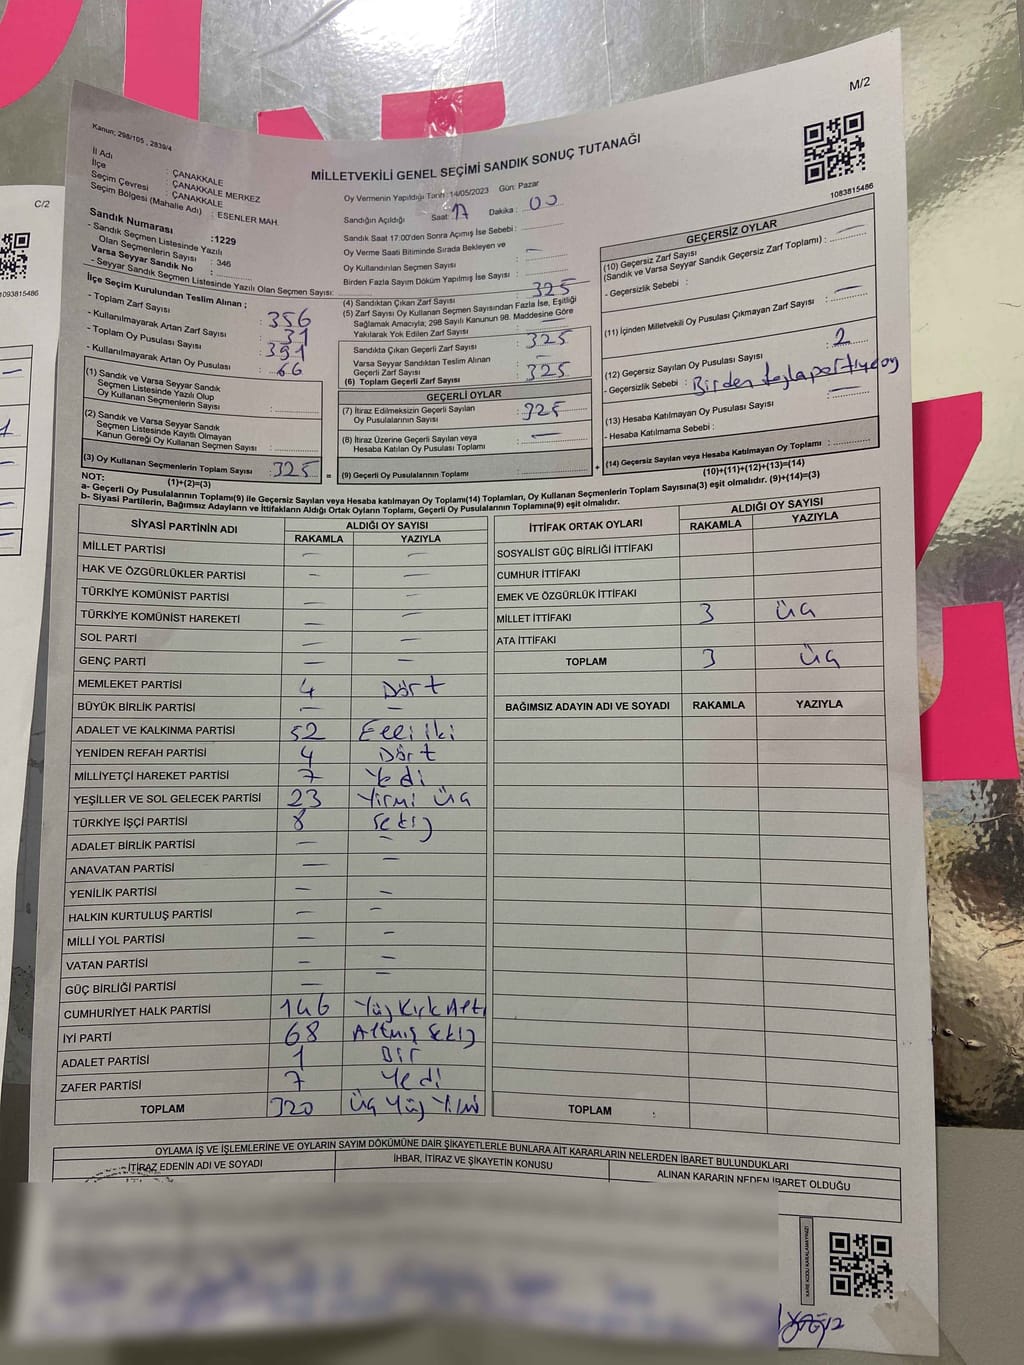 M/2
Kanun; 298/105 , 2839/4
MİLLETVEKİLİ GENEL SEÇİMİ SANDIK SONUÇ TUTANAĞI
1083815486
İl Adı : ÇANAKKALE
İlçe : ÇANAKKALE MERKEZ
Seçim Çevresi : ÇANAKKALE
Seçim Bölgesi (Mahalle Adı) : ESENLER MAH.
Sandık Numarası :1229
- Sandık Seçmen Listesinde Yazılı
Olan Seçmenlerin Sayısı : 346
Varsa Seyyar Sandık No :
- Seyyar Sandık Seçmen Listesinde Yazılı Olan Seçmen Sayısı:
İlçe Seçim Kurulundan Teslim Alınan ;
- Toplam Zarf Sayısı : 356
- Kullanılmayarak Artan Zarf Sayısı : 31
- Toplam Oy Pusulası Sayısı : 391
- Kullanılmayarak Artan Oy Pusulası : 66
(1) Sandık ve Varsa Seyyar Sandık
Seçmen Listesinde Yazılı Olup
Oy Kullanan Seçmenlerin Sayısı :
(2) Sandık ve Varsa Seyyar Sandık
Seçmen Listesinde Kayıtlı Olmayan
Kanun Gereği Oy Kullanan Seçmen Sayısı :
(3) Oy Kullanan Seçmenlerin Toplam Sayısı : 325
(1)+(2)=(3)
Oy Vermenin Yapıldığı Tarih: 14/05/2023 Gün: Pazar
Sandığın Açıldığı Saat: 17 Dakika : 00
Sandık Saat 17:00'den Sonra Açımış İse Sebebi :
Oy Verme Saati Bitiminde Sırada Bekleyen ve
Oy Kullandırılan Seçmen Sayısı : —
Birden Fazla Sayım Döküm Yapılmış İse Sayısı : —
(4) Sandıktan Çıkan Zarf Sayısı : 325
(5) Zarf Sayısı Oy Kullanan Seçmen Sayısından Fazla İse, Eşitliği
Sağlamak Amacıyla; 298 Sayılı Kanunun 98. Maddesine Göre
Yakılarak Yok Edilen Zarf Sayısı : —
Sandıkta Çıkan Geçerli Zarf Sayısı : 325
Varsa Seyyar Sandıktan Teslim Alınan
Geçerli Zarf Sayısı : —
(6) Toplam Geçerli Zarf Sayısı : 325
GEÇERLİ OYLAR
(7) İtiraz Edilmeksizin Geçerli Sayılan
Oy Pusulalarının Sayısı : 325
(8) İtiraz Üzerine Geçerli Sayılan veya
Hesaba Katılan Oy Pusulası Toplamı : —
= (9) Geçerli Oy Pusulalarının Toplamı :
GEÇERSİZ OYLAR
(10) Geçersiz Zarf Sayısı
(Sandık ve Varsa Seyyar Sandık Geçersiz Zarf Toplamı) : —
- Geçersizlik Sebebi :
(11) İçinden Milletvekili Oy Pusulası Çıkmayan Zarf Sayısı : —
(12) Geçersiz Sayılan Oy Pusulası Sayısı : 2
- Geçersizlik Sebebi : Birden fazla partiye oy
(13) Hesaba Katılmayan Oy Pusulası Sayısı : —
- Hesaba Katılmama Sebebi :
+ (14) Geçersiz Sayılan veya Hesaba Katılmayan Oy Toplamı :
(10)+(11)+(12)+(13)=(14)
NOT:
a- Geçerli Oy Pusulalarının Toplamı(9) ile Geçersiz Sayılan veya Hesaba katılmayan Oy Toplamı(14) Toplamları, Oy Kullanan Seçmenlerin Toplam Sayısına(3) eşit olmalıdır. (9)+(14)=(3)
b- Siyasi Partilerin, Bağımsız Adayların ve İttifakların Aldığı Ortak Oyların Toplamı, Geçerli Oy Pusulalarının Toplamına(9) eşit olmalıdır.
SİYASİ PARTİNİN ADI ALDIĞI OY SAYISI
RAKAMLA YAZIYLA
MİLLET PARTİSİ — —
HAK VE ÖZGÜRLÜKLER PARTİSİ — —
TÜRKİYE KOMÜNİST PARTİSİ — —
TÜRKİYE KOMÜNİST HAREKETİ — —
SOL PARTİ — —
GENÇ PARTİ — —
MEMLEKET PARTİSİ 4 Dört
BÜYÜK BİRLİK PARTİSİ — —
ADALET VE KALKINMA PARTİSİ 52 Elli iki
YENİDEN REFAH PARTİSİ 4 Dört
MİLLİYETÇİ HAREKET PARTİSİ 7 Yedi
YEŞİLLER VE SOL GELECEK PARTİSİ 23 Yirmi Üç
TÜRKİYE İŞÇİ PARTİSİ 8 Sekiz
ADALET BİRLİK PARTİSİ — —
ANAVATAN PARTİSİ — —
YENİLİK PARTİSİ — —
HALKIN KURTULUŞ PARTİSİ — —
MİLLİ YOL PARTİSİ — —
VATAN PARTİSİ — —
GÜÇ BİRLİĞİ PARTİSİ — —
CUMHURİYET HALK PARTİSİ 146 Yüz Kırk Altı
İYİ PARTİ 68 Altmış Sekiz
ADALET PARTİSİ 1 Bir
ZAFER PARTİSİ 7 Yedi
TOPLAM 320 Üç Yüz Yirmi
İTTİFAK ORTAK OYLARI ALDIĞI OY SAYISI
RAKAMLA YAZIYLA
SOSYALİST GÜÇ BİRLİĞİ İTTİFAKI
CUMHUR İTTİFAKI
EMEK VE ÖZGÜRLÜK İTTİFAKI
MİLLET İTTİFAKI 3 Üç
ATA İTTİFAKI
TOPLAM 3 Üç
BAĞIMSIZ ADAYIN ADI VE SOYADI RAKAMLA YAZIYLA
TOPLAM
OYLAMA İŞ VE İŞLEMLERİNE VE OYLARIN SAYIM DÖKÜMÜNE DAİR ŞİKAYETLERLE BUNLARA AİT KARARLARIN NELERDEN İBARET BULUNDUKLARI
İTİRAZ EDENİN ADI VE SOYADI İHBAR, İTİRAZ VE ŞİKAYETİN KONUSU ALINAN KARARIN NEDEN İBARET OLDUĞU
KARE KODU KARALAMAYINIZ!
C/2
1093815486